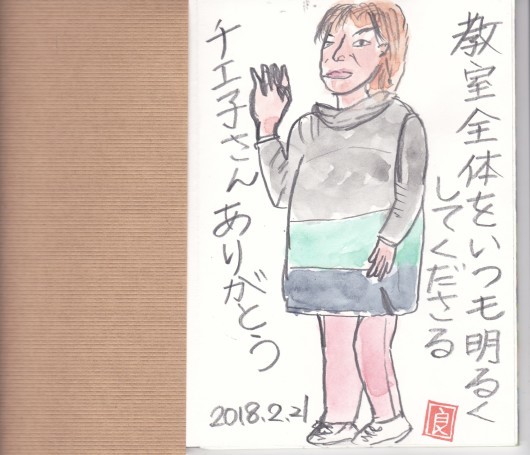 教室全体をいつも明るく
してくださる
チエ子さんありがとう
2018.2.21
良